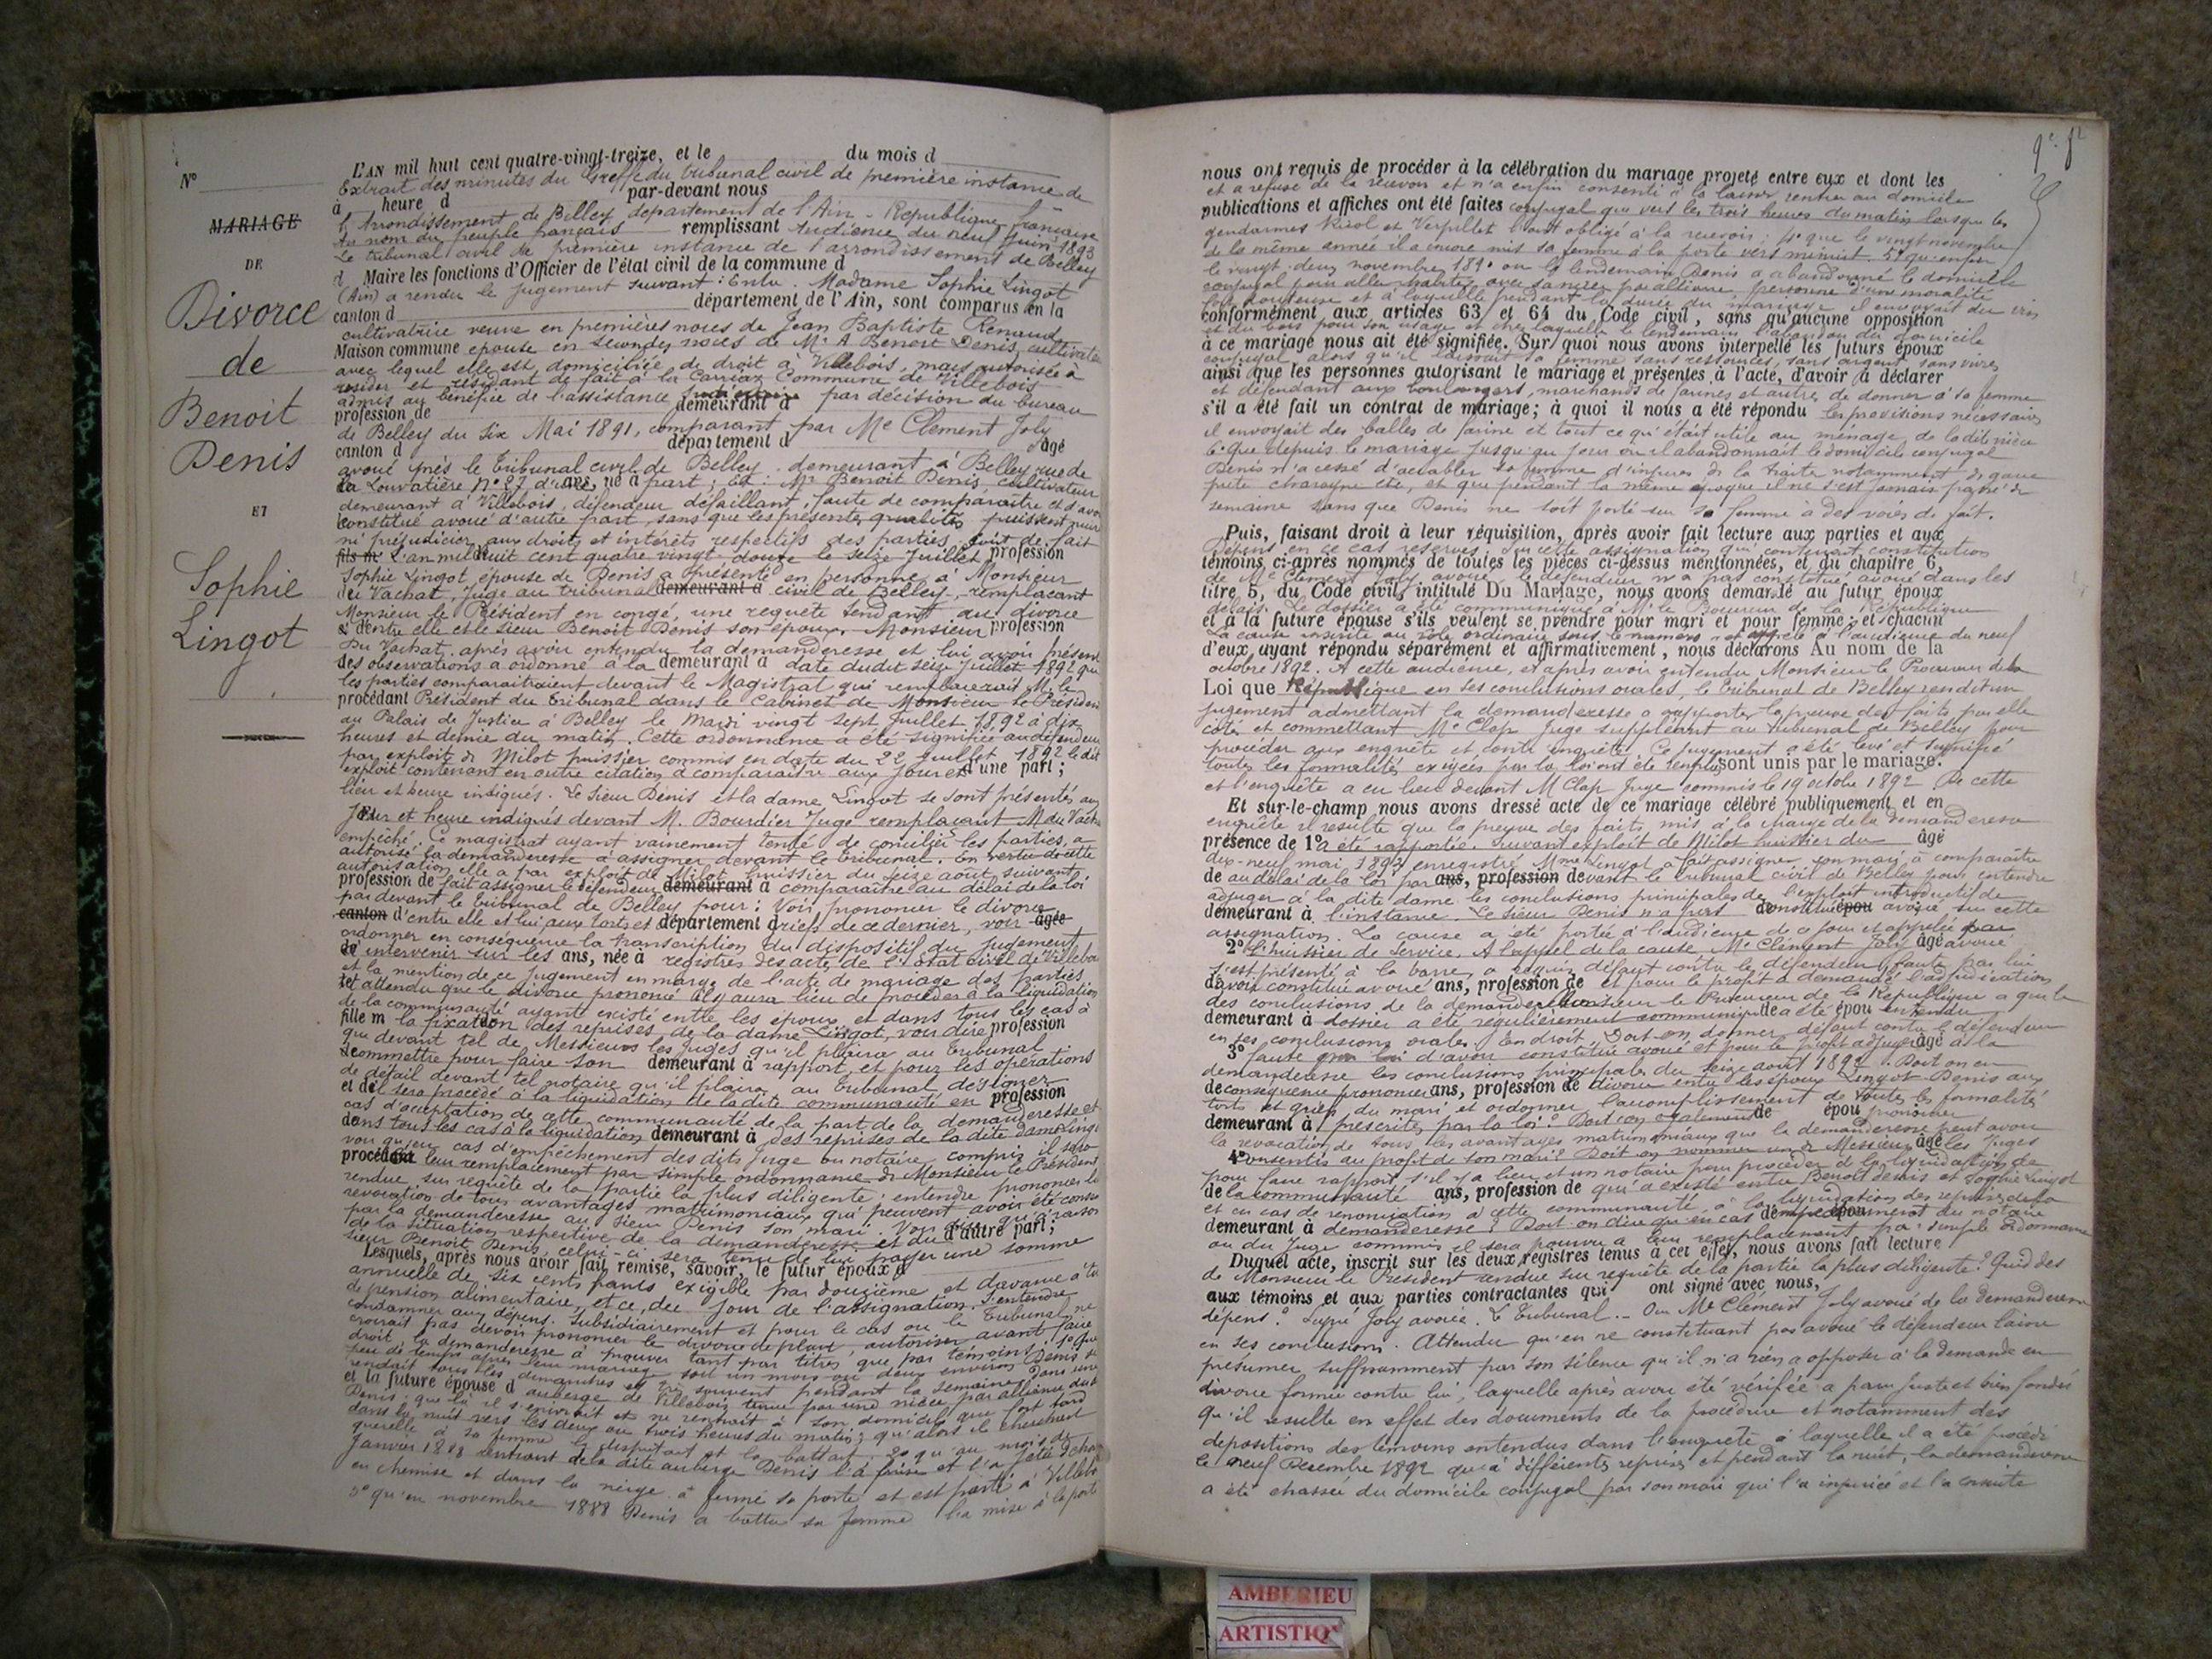 L'AN mil huit cent quatre-vingt-treize, et le du mois d
Extrait des minutes du Greffe du tribunal civil de première instance de
N°
à heure d par-devant nous
l'Arrondissement de Belley département de l'Ain - République française
MARIAGE
Au nom du peuple français remplissant Audience du neuf Juin 1893
Le tribunal civil de première instance de l'arrondissement de Belley
DE
d Maire les fonctions d'Officier de l'état civil de la commune d
(Ain) a rendu le jugement suivant : Entre. Madame Sophie Lingot
Divorce
canton d département de l'Ain, sont comparus en la
cultivatrice veuve en premières noces de Jean Baptiste Renaud
Maison commune épouse en secondes noces de Mr A Benoit Denis, cultivateur
de
avec lequel elle est domiciliée de droit à Villebois, mais autorisée à
résider et résidant de fait à la Carriaz Commune de Villebois
admis au bénéfice de l'assistance par décision du bureau
Benoit
profession de demeurant à
de Belley du six Mai 1891, comparant par Me Clement Joly
Denis
canton d département d âgé
avoué près le tribunal civil de Belley. demeurant à Belley rue de
la Louvatière N° 27 d'une ans, né à part ; Et : Mr Benoit Denis cultivateur
demeurant à Villebois, défendeur défaillant, faute de comparaître et d'avoir
ET
constitué avoué d'autre part, sans que les présentes qualités puissent nuire
ni préjudicier aux droits et intérêts respectifs des parties. Point de fait
fils m L'an mil huit cent quatre vingt douze le seize Juillet profession
Sophie
Sophie Lingot épouse de Denis a présenté en personne à Monsieur
du Vachat, Juge au tribunal demeurant à civil de Belley, remplaçant
Monsieur le Président en congé, une requête tendant au divorce
Lingot
d'entre elle et le sieur Benoit Denis son époux. Monsieur profession
Du Vachat, après avoir entendu la demanderesse et lui avoir présenté
ses observations a ordonné à la demeurant à date dudit seize Juillet 1892 que
les parties comparaîtraient devant le Magistrat qui remplacerait M. le
procédant Président du tribunal dans le Cabinet de Monsieur le Président
au Palais de Justice à Belley le Mardi vingt sept Juillet 1892 à dix
heures et demie du matin. Cette ordonnance a été signifiée au défendeur
par exploit de Milot huissier commis en date du 22 Juillet 1892 le dit
exploit contenant en outre citation à comparaître aux jour et d'une part ;
lieu et heure indiqués. Le sieur Denis et la dame Lingot se sont présentés aux
Jour et heure indiqués devant M. Bourdier Juge remplaçant M du Vachat
empêché Ce magistrat ayant vainement tenté de concilier les parties, a
autorisé la demanderesse à assigner devant le tribunal. En vertu de cette
autorisation elle a par exploit de Milot huissier du seize août suivant
profession de fait assigner le défendeur demeurant à comparaître au délai de la loi
par devant le tribunal de Belley pour : Voir prononcer le divorce
canton d'entre elle et lui aux torts et département d griefs de ce dernier, voir âgée
ordonner en conséquence la transcription du dispositif du jugement
de intervenir sur les ans, née à registres des actes de l'Etat civil de Villebois
et la mention de ce jugement en marge de l'acte de mariage des parties
et attendu que le divorce prononcé il y aura lieu de procéder à la liquidation
de la communauté ayant existé entre les époux et dans tous les cas à
fille m la fixation des reprises de la dame Lingot, voir dire profession
que devant tel de Messieurs les Juges qu'il plaira au tribunal
de commettre pour faire son demeurant à rapport, et pour les opérations
de détail devant tel notaire qu'il plaira au tribunal désigner
et de il sera procédé à la liquidation de la dite communauté en profession
cas d'acceptation de cette communauté de la part de la demanderesse et
dans tous les cas à la liquidation demeurant à des reprises de la dite dame Lingot
voir qu'en cas d'empêchement des dits Juge ou notaire commis il sera
procédant leur remplacement par simple ordonnance de Monsieur le Président
rendue sur requête de la partie la plus diligente ; entendre prononcer la
révocation de tous avantages matrimoniaux qui peuvent avoir été consentis
par la demanderesse au sieur Denis son mari. Voir dire qu'à raison
de la situation respective de la demanderesse et du d'autre part ;
sieur Benoit Denis, celui-ci sera tenu de lui payer une somme
Lesquels, après nous avoir fait remise, savoir, le futur époux d
annuelle de six cents francs exigible par douzième et d'avance à titre
de pension alimentaire, et ce, du jour de l'assignation. S'entendre
condamner aux dépens. Subsidiairement et pour le cas où le tribunal ne
croirait pas devoir prononcer le divorce de plano, autoriser avant faire
droit, la demanderesse à prouver tant par titres que par témoins : 1° que
peu de temps après leur mariage soit un mois ou deux environ Denis se
rendait tous les dimanches et très souvent pendant la semaine dans une
et la future épouse d auberge de Villebois tenue par une nièce par alliance dudit
Denis ; que là il s'enivrait et ne rentrait à son domicile que fort tard
dans la nuit vers les deux ou trois heures du matin ; qu'alors il cherchait
querelle à sa femme la disputait et la battait. 2° qu'au mois de
Janvier 1888 rentrant de la dite auberge Denis l'a prise et l'a jetée dehors
en chemise et dans la neige, a fermé sa porte et est parti à Villebois
3° qu'en novembre 1888 Denis a battu sa femme l'a mise à la porte
nous ont requis de procéder à la célébration du mariage projeté entre eux et dont les
et a refusé de la recevoir et n'a enfin consenti à la laisser rentrer au domicile
publications et affiches ont été faites conjugal que vers les trois heures du matin lorsque les
gendarmes Nicol et Verpillet l'ont obligé à la recevoir ; 4° que le vingt novembre
de la même année il a encore mis sa femme à la porte vers minuit. 5° qu'enfin
le vingt-deux novembre 1890 ou le lendemain Denis a abandonné le domicile
conjugal pour aller habiter avec sa nièce par alliance personne d'une moralité
fort douteuse et à laquelle pendant la durée du mariage il envoyait du vin
conformément aux articles 63 et 64 du Code civil, sans qu'aucune opposition
et du bois pour son usage et chez laquelle le lendemain l'abandon du domicile
à ce mariage nous ait été signifiée. Sur quoi nous avons interpellé les futurs époux
conjugal, alors qu'il laissait sa femme sans ressources, sans argent, sans vivres
ainsi que les personnes autorisant le mariage et présentes à l'acte, d'avoir à déclarer
et défendant aux boulangers, marchands de farines et autres de donner à sa femme
s'il a été fait un contrat de mariage ; à quoi il nous a été répondu les provisions nécessaires
il envoyait des balles de farine et tout ce qu'était utile au ménage de la dite nièce
6° Que depuis le mariage jusqu'au jour où il abandonnait le domicile conjugal
Denis n'a cessé d'accabler sa femme d'injures de la traite notamment de garce
charogne etc, et que pendant la même époque il ne s'est jamais passé de
semaine sans que Denis ne soit porté sur sa femme à des voies de fait.
Puis, faisant droit à leur réquisition, après avoir fait lecture aux parties et aux
Dépens en ce cas réservés. Sur cette assignation qui contenait constitution
témoins ci-après nommés de toutes les pièces ci-dessus mentionnées, et du chapitre 6,
de Me Clement Joly avoué, le défendeur n'a pas constitué avoué dans les
titre 5, du Code civil, intitulé Du Mariage, nous avons demandé au futur époux
délais. Le dossier a été communiqué à Mr le Procureur de la République
et à la future épouse s'ils veulent se prendre pour mari et pour femme ; et chacun
La cause inscrite au rôle ordinaire sous le numéro et appelée à l'audience du neuf
d'eux ayant répondu séparément et affirmativement, nous déclarons Au nom de la
octobre 1892. A cette audience, et après avoir entendu Monsieur le Procureur de la
Loi que République en ses conclusions orales, le tribunal de Belley rendit un
jugement admettant la demanderesse à rapporter la preuve des faits par elle
cités et commettant Mr Clap Juge suppléant au tribunal de Belley pour
procéder aux enquête et contre enquête. Ce jugement a été levé et signifié
toutes les formalités exigées par la loi ont été remplies sont unis par le mariage.
et l'enquête a eu lieu devant M Clap Juge commis le 19 octobre 1892 De cette
Et sur-le-champ nous avons dressé acte de ce mariage célébré publiquement et en
enquête il résulte que la preuve des faits mis à la charge de la demanderesse
présence de 1° a été rapportée. Suivant exploit de Milot huissier du âgé
dix-neuf mai 1893 enregistré Mme Lingot a fait assigner son mari à comparaître
de au délai de la loi par ans, profession devant le tribunal civil de Belley pour entendre
adjuger à la dite dame les conclusions principales de l'exploit introductif de
demeurant à l'instance. Le sieur Denis n'a pas constitué épou avoué sur cette
assignation. La cause a été portée à l'audience de ce jour et appelée par
2° l'huissier de service. A l'appel de la cause Me Clément Joly âgé avoué
s'est présenté à la barre, a requis défaut contre le défendeur faute par lui
d'avoir constitué avoué ans, profession de et pour le profit a demandé l'adjudication
des conclusions de la demande. Monsieur le Procureur de la République à qui le
demeurant à dossier a été régulièrement communiqué de a été épou entendu
en ses conclusions orales. En droit. Doit-on donner défaut contre le défendeur
3° faute par lui d'avoir constitué avoué et pour le profit adjuger âgé à la
demanderesse les conclusions principales du seize août 1892 ? Doit on en
de conséquence prononcer ans, profession de divorce entre les époux Lingot Denis aux
torts et griefs du mari et ordonner l'accomplissement de toutes les formalités
demeurant à prescrites par la loi ? Doit-on également de épou prononcer
la révocation de tous les avantages matrimoniaux que la demanderesse peut avoir
4° consentis au profit de son mari ? Doit on nommer un de Messieurs âgé les Juges
pour faire rapport s'il y a lieu et un notaire pour procéder à la liquidation de
de la communauté ans, profession de qui a existé entre Benoit Denis et Sophie Lingot
et en cas de renonciation à cette communauté, à la liquidation des reprises de la
demeurant à demanderesse ? Doit-on dire qu'en cas d'empêchement épou du notaire
ou du Juge commis il sera pourvu à leur remplacement par simple ordonnance
Duquel acte, inscrit sur les deux registres tenus à cet effet, nous avons fait lecture
de Monsieur le Président rendue sur requête de la partie la plus diligente ? Quid des
aux témoins et aux parties contractantes qui ont signé avec nous,
dépens ? Signé Joly avoué. Le Tribunal. — Ouï Me Clément Joly avoué de la demanderesse
en ses conclusions. Attendu qu'en ne constituant pas avoué le défendeur laisse
présumer suffisamment par son silence qu'il n'a rien à opposer à la demande en
divorce formée contre lui, laquelle après avoir été vérifiée a paru juste et bien fondée
Qu'il résulte en effet des documents de la procédure et notamment des
dépositions des témoins entendus dans l'enquête à laquelle il a été procédé
le neuf Décembre 1892 qu'à différentes reprises et pendant la nuit, la demanderesse
a été chassée du domicile conjugal par son mari qui l'a injuriée et l'a ensuite
AMBERIEU
ARTISTIQ